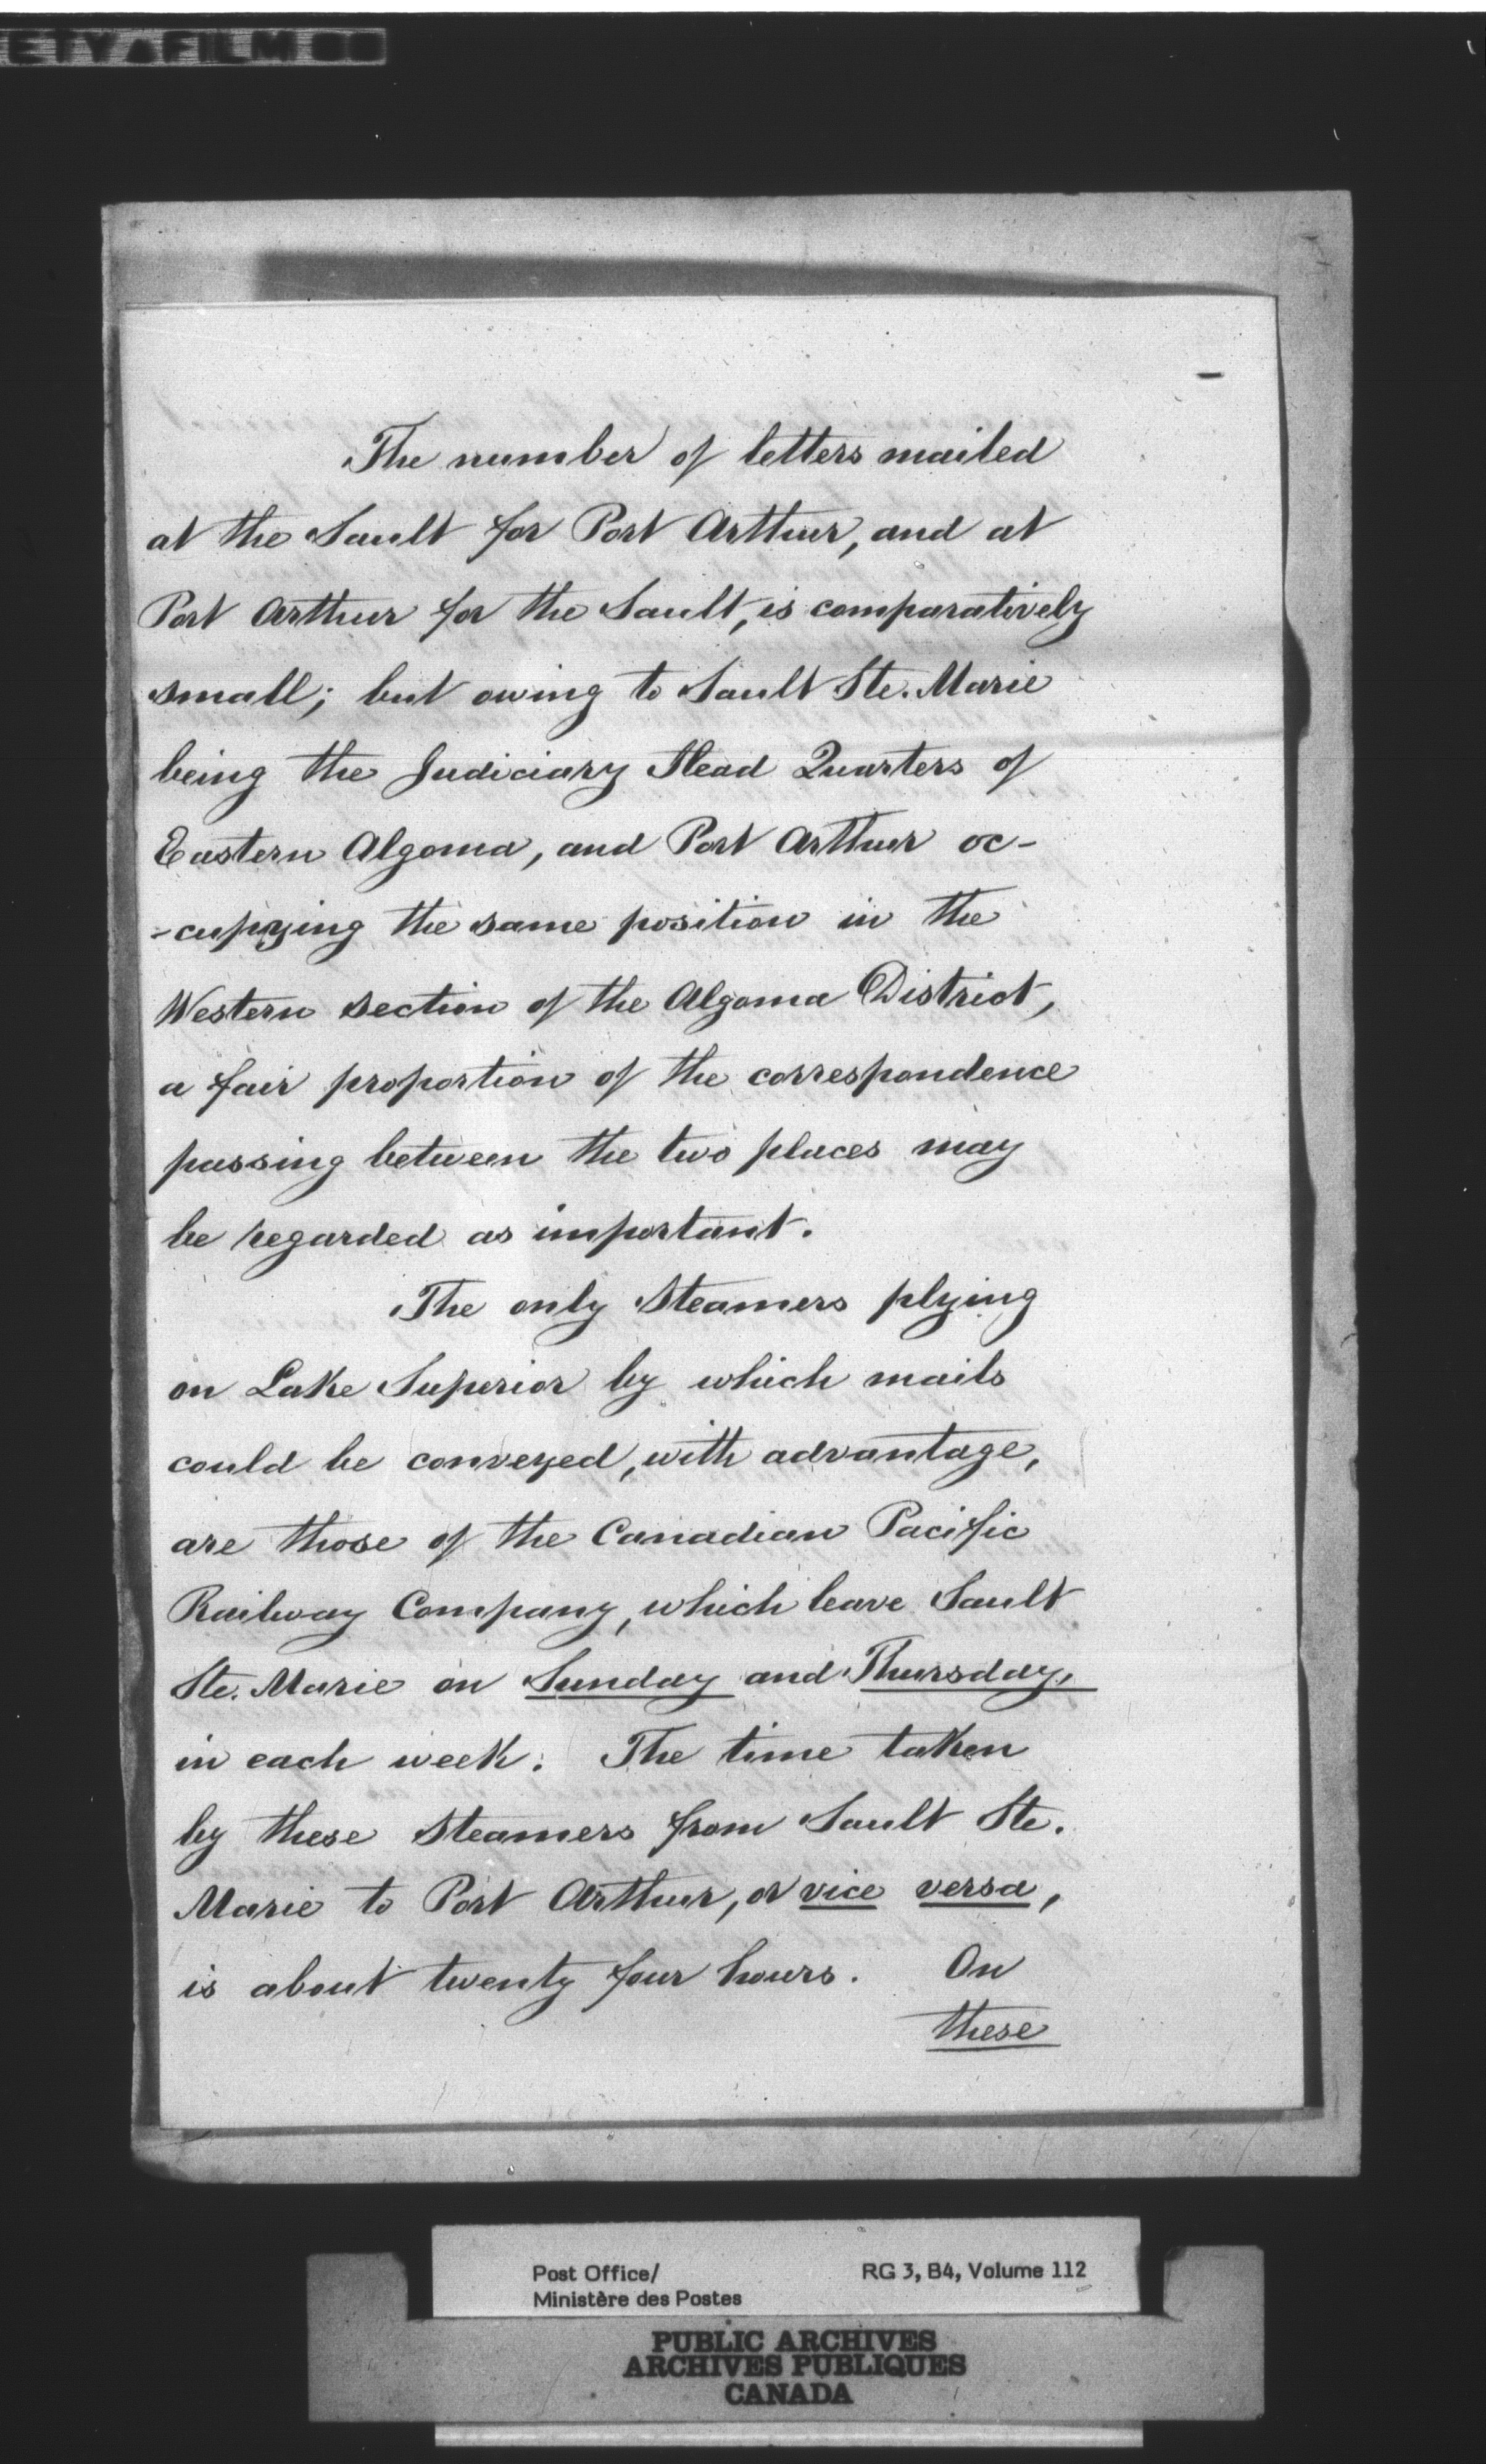 ETY▲FILM ●●
The number of letters mailed
at the Sault for Port Arthur, and at
Port Arthur for the Sault, is comparatively
small; but owing to Sault Ste. Marie
being the Judiciary Head Quarters of
Eastern Algoma, and Port Arthur oc-
-cupying the same position in the
Western section of the Algoma District,
a fair proportion of the correspondence
passing between the two places may
be regarded as important.
The only Steamers plying
on Lake Superior by which mails
could be conveyed, with advantage,
are those of the Canadian Pacific
Railway Company, which leave Sault
Ste. Marie on Sunday and Thursday,
in each week. The time taken
by these Steamers from Sault Ste.
Marie to Port Arthur, or vice versa,
is about twenty four hours. On
these
Post Office/ RG 3, B4, Volume 112
Ministère des Postes
PUBLIC ARCHIVES
ARCHIVES PUBLIQUES
CANADA